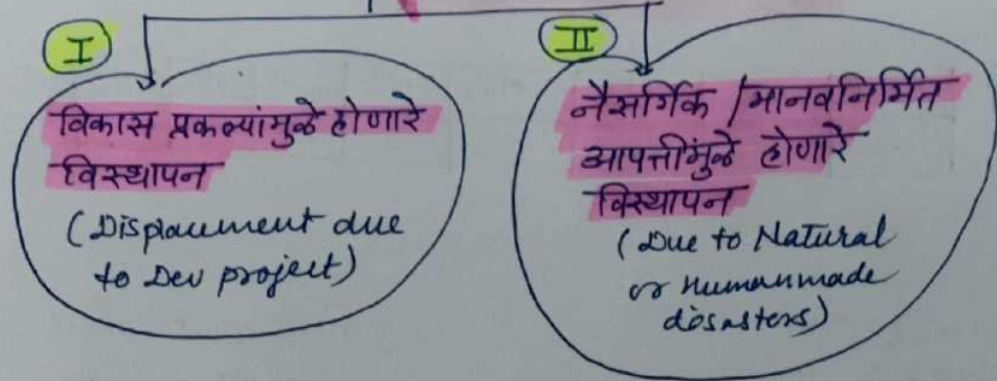 I
विकास प्रकल्पांमुळे होणारे
विस्थापन
(Displacement due
to Dev project)
II
नैसर्गिक / मानवनिर्मित
आपत्तींमुळे होणारे
विस्थापन
(Due to Natural
or Humanmade
disasters)